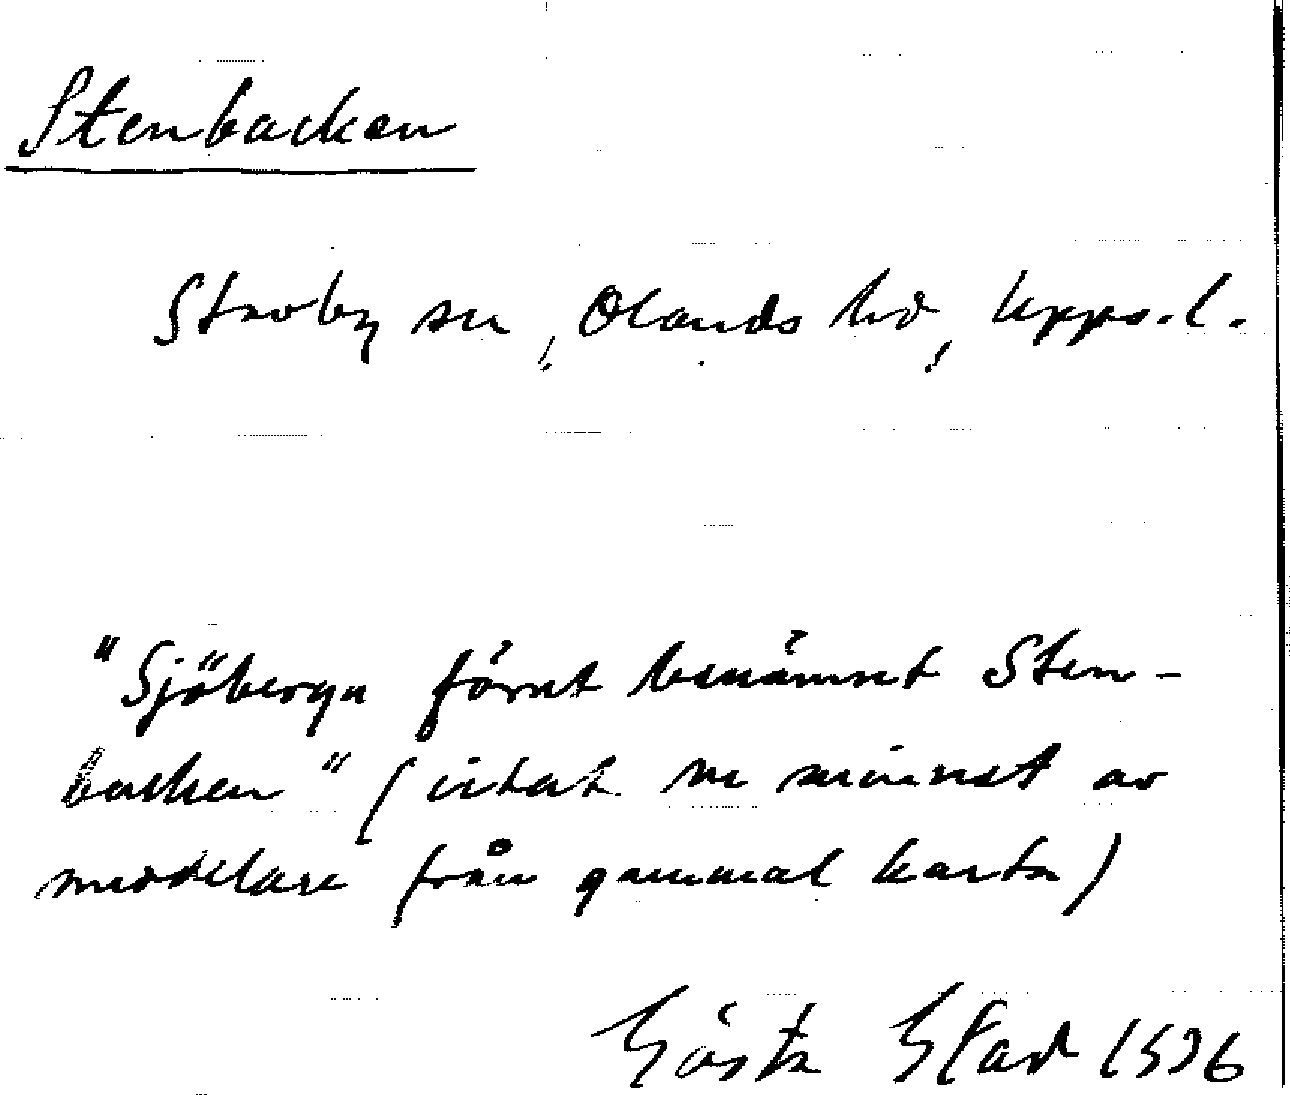 Stenbacken
Stavby sn, Olands hd, Upps. l.
"Sjöberga förut benämnt Sten-
backen" (citat ur minnet av
meddelare från gammal karta)
Gösta 1936